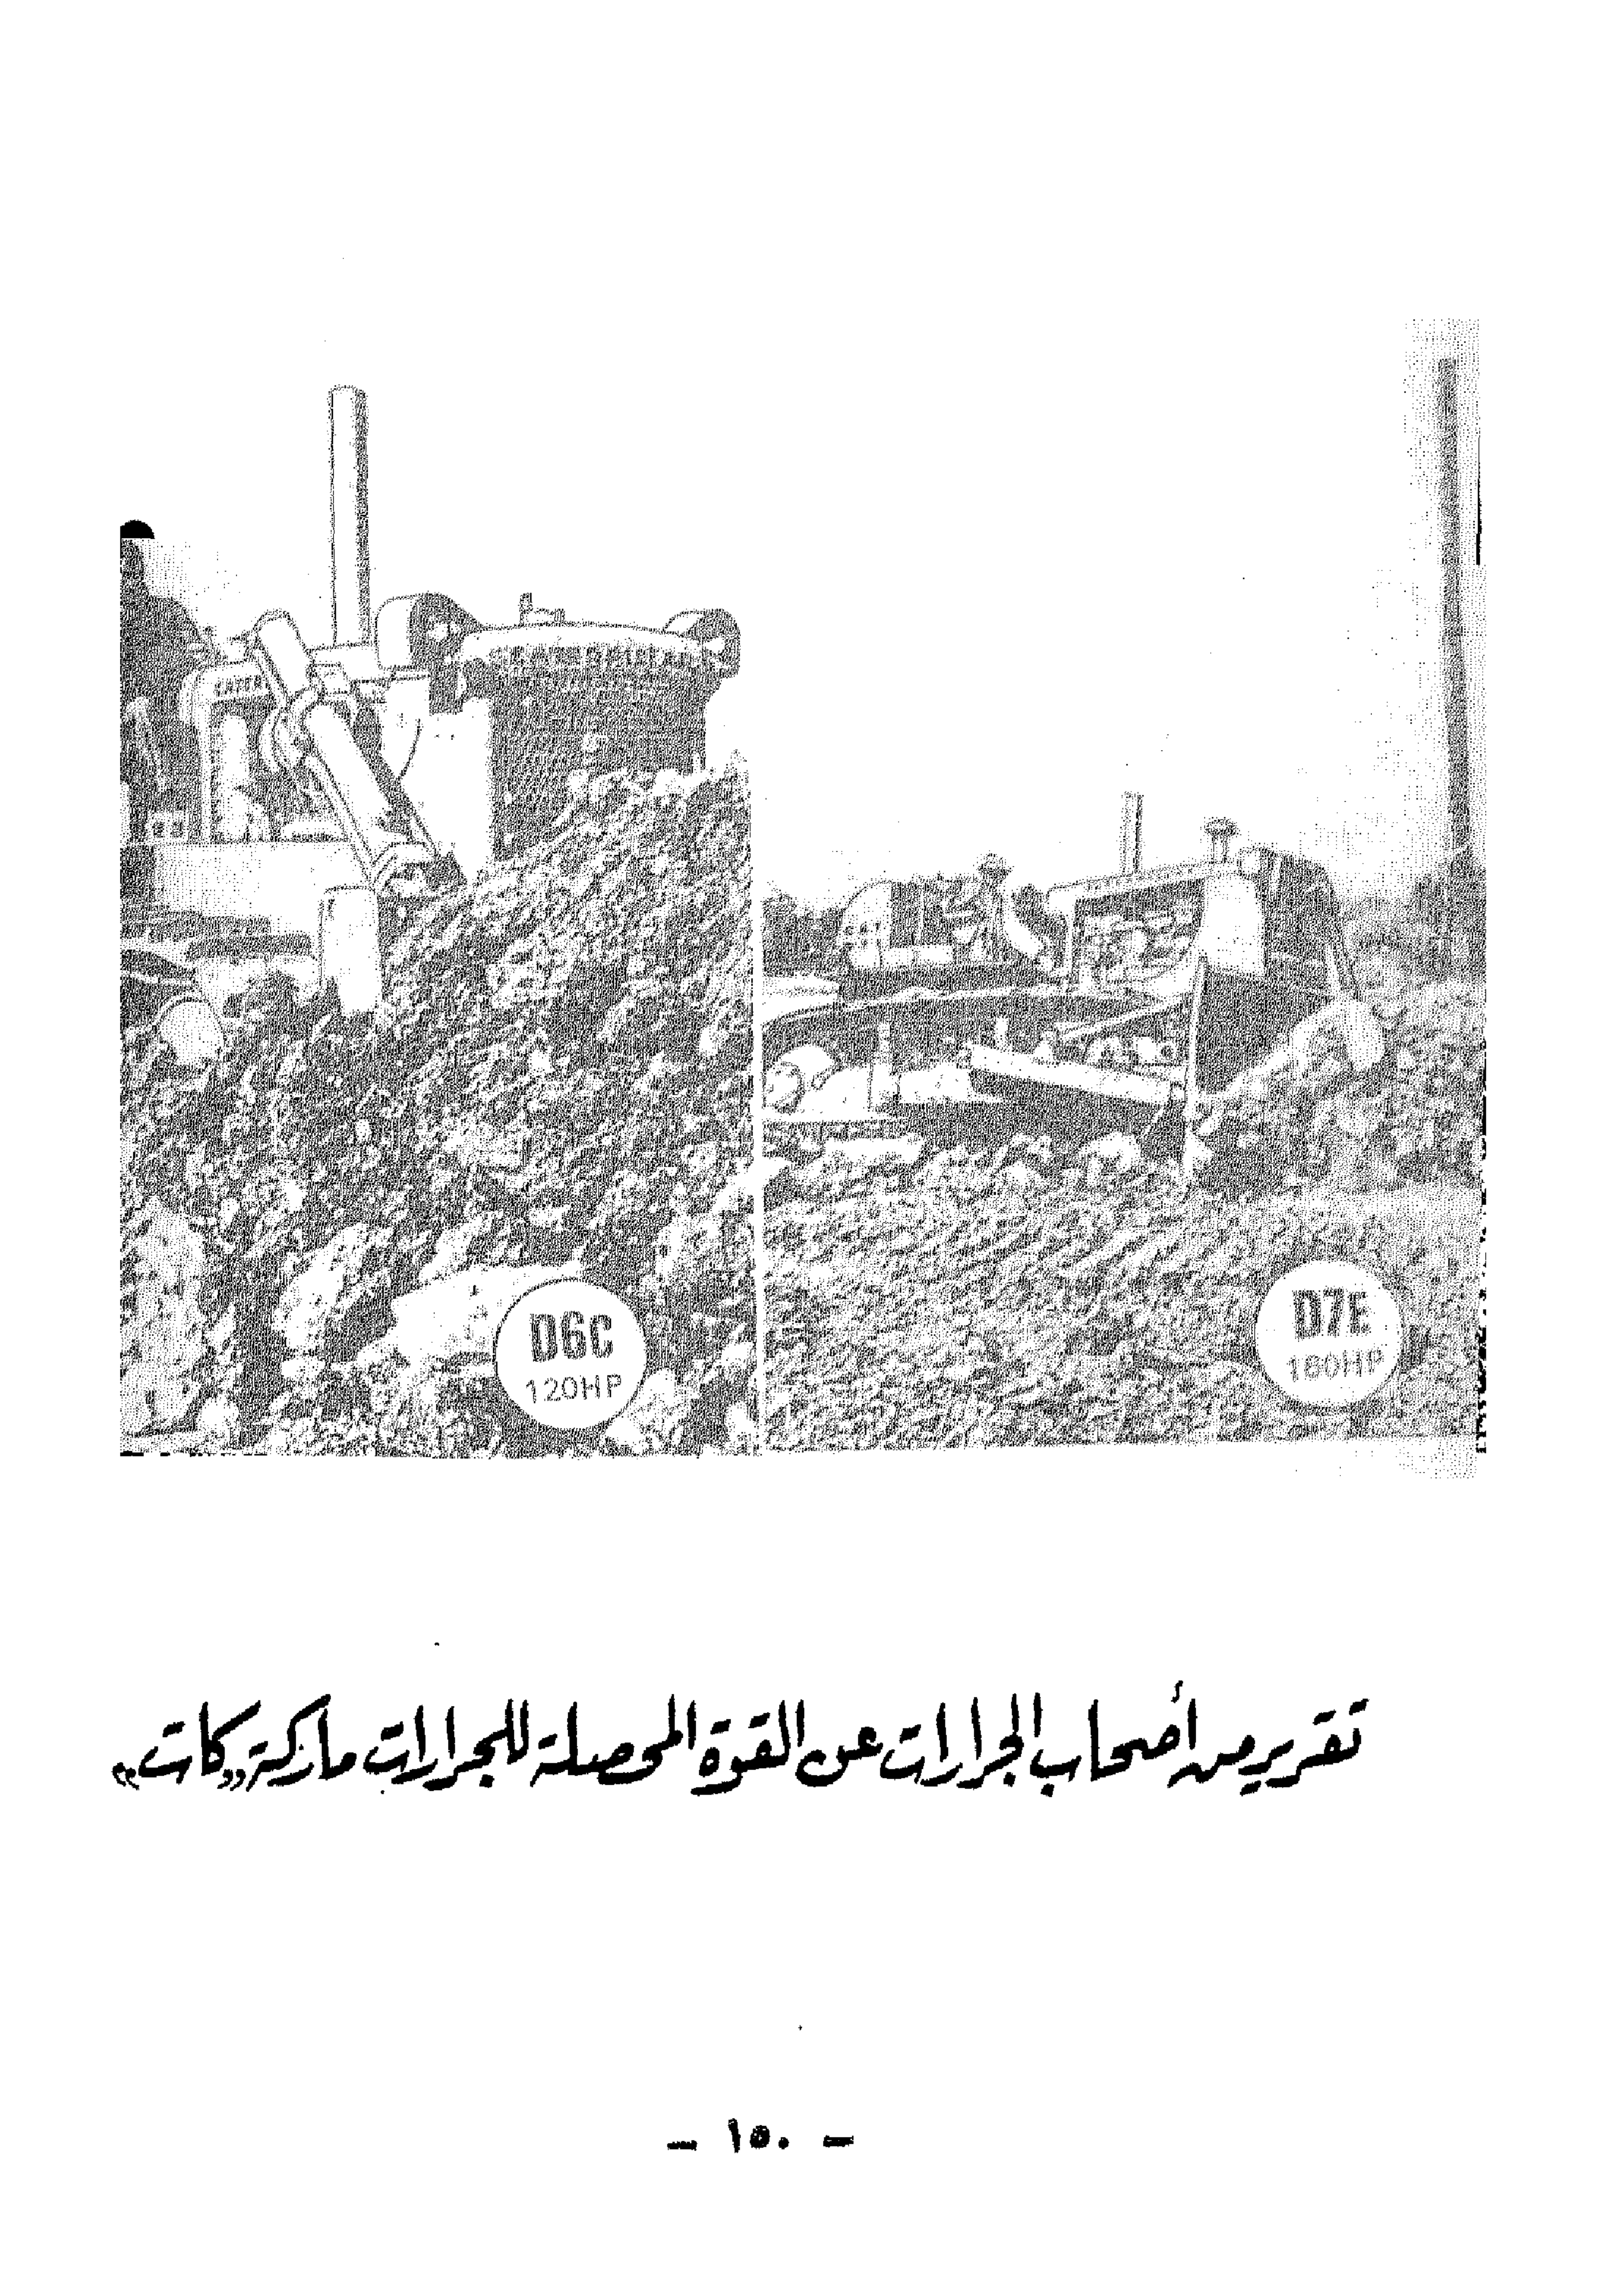 D6C
120HP
D7E
160HP
تقرير من أصحاب الجرارات عن القوة المحصلة للجرارات ماركة «كات»
- ١٥٠ -